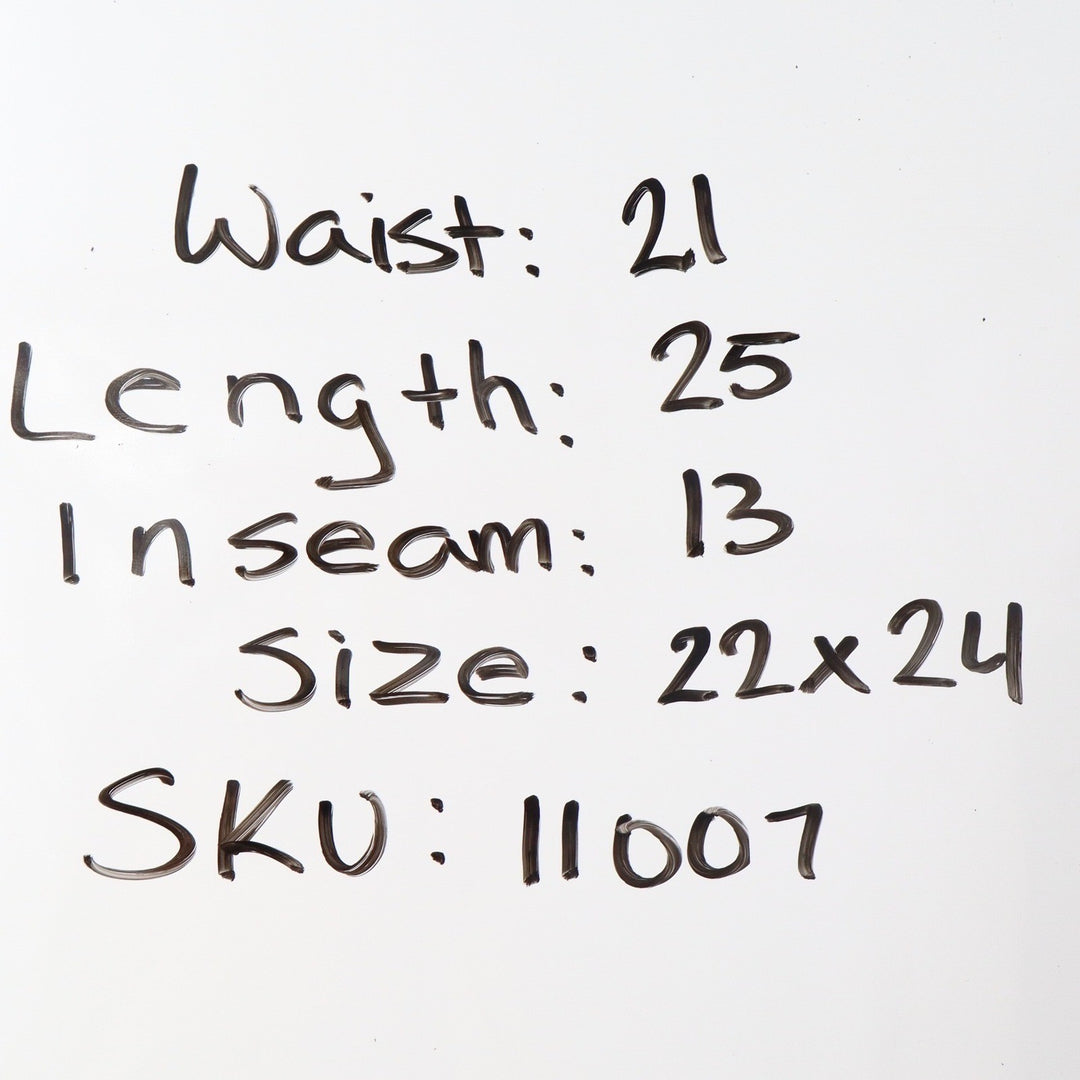 Waist: 21
Length: 25
Inseam: 13
Size: 22x24
SKU: 11007